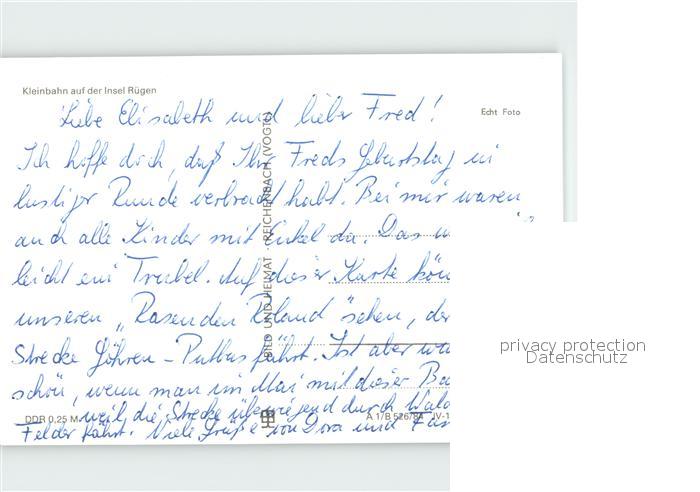 Kleinbahn auf der Insel Rügen
Echt Foto
Liebe Elisabeth und lieber Fred!
Ich hoffe doch, daß Ihr Freds Geburtstag in
lustiger Runde verbracht habt. Bei mir waren
auch alle Kinder mit Enkel da. Das
leicht ein Trubel. Auf dieser Karte kön
unseren „Rasenden Roland" sehen, der
Strecke Göhren - Putbus fährt. Ist aber
schön, wenn man im Mai mit dieser Ba
weil die Strecke überwiegend durch Wald
Felder fährt. Viele Grüße von Dora und Fam
DDR 0,25 M
BILD UND HEIMAT · REICHENBACH (VOGTL)
A 1/B 526/84 IV-1
privacy protection
Datenschutz